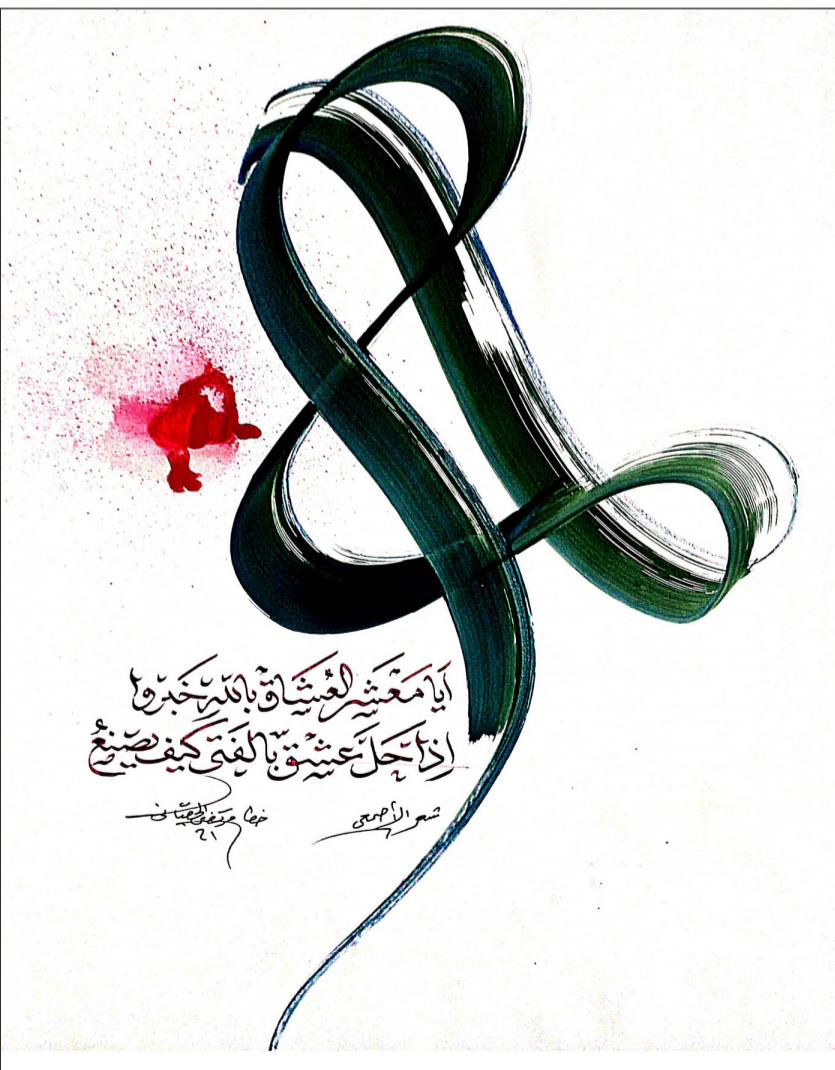 أيا مَعْشَر العُشّاق باللهِ خَبِّروا
إذا حَلَّ عِشْقٌ بالفَتَى كيف يَصْنَعُ
شعر الأصمعي
خط مرتضى
٢١